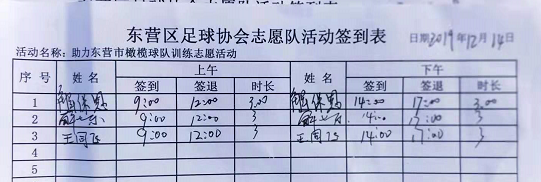 东营区足球协会志愿队活动签到表 日期2019年12月14日
活动名称：助力东营市橄榄球队训练志愿活动
序号 姓名 上午 姓名 下午
签到 签退 时长 签到 签退 时长
1 9:00 12:00 3.00 14:00 17:00 3.00
2 9:00 12:00 3 14:00 17:00 3
3 王同飞 9:00 12:00 3 王同飞 14:00 17:00 3
4
5